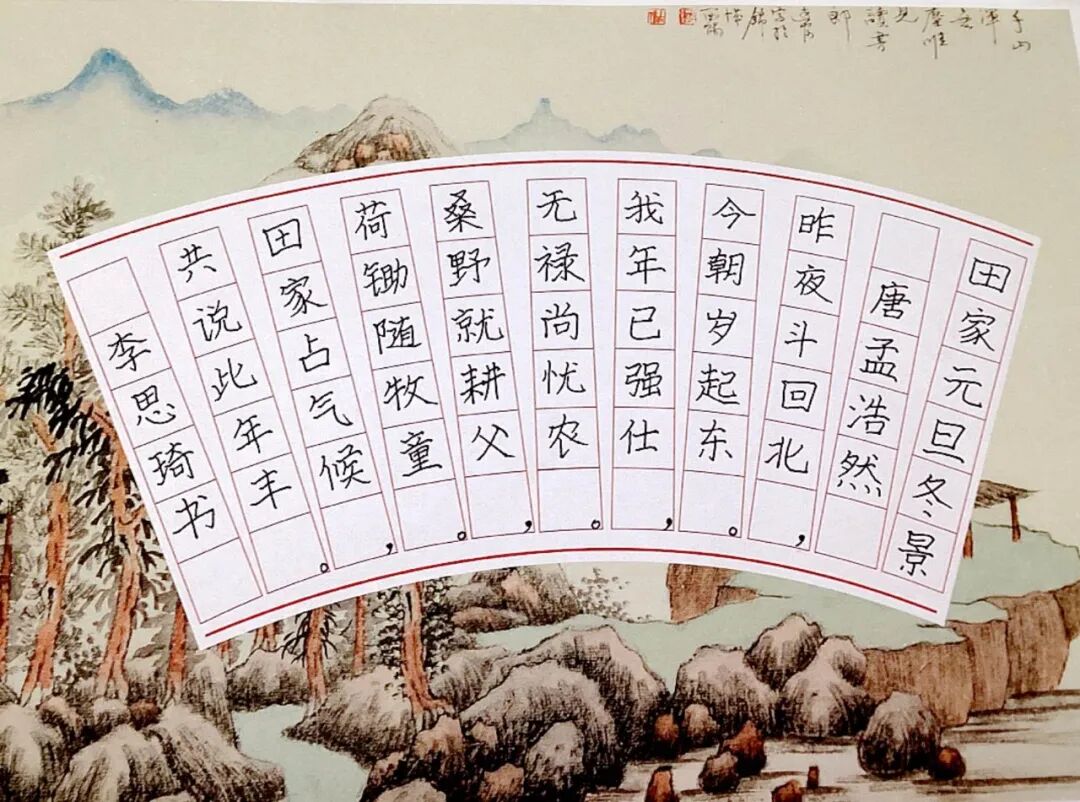 田家元旦冬景
唐孟浩然
昨夜斗回北，
今朝岁起东。
我年已强仕，
无禄尚忧农。
桑野就耕父，
荷锄随牧童。
田家占气候，
共说此年丰。
李思琦书